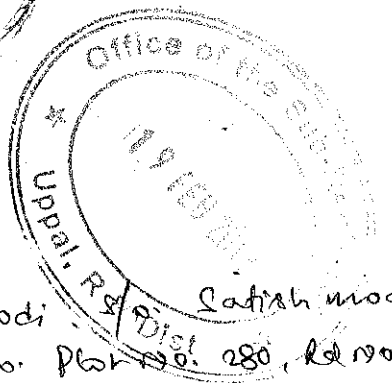 Office of the Sub-
★ Uppal, R.R. Dist
19 FEB
Satish mod
odi
o. Plot No. 280, Rd no